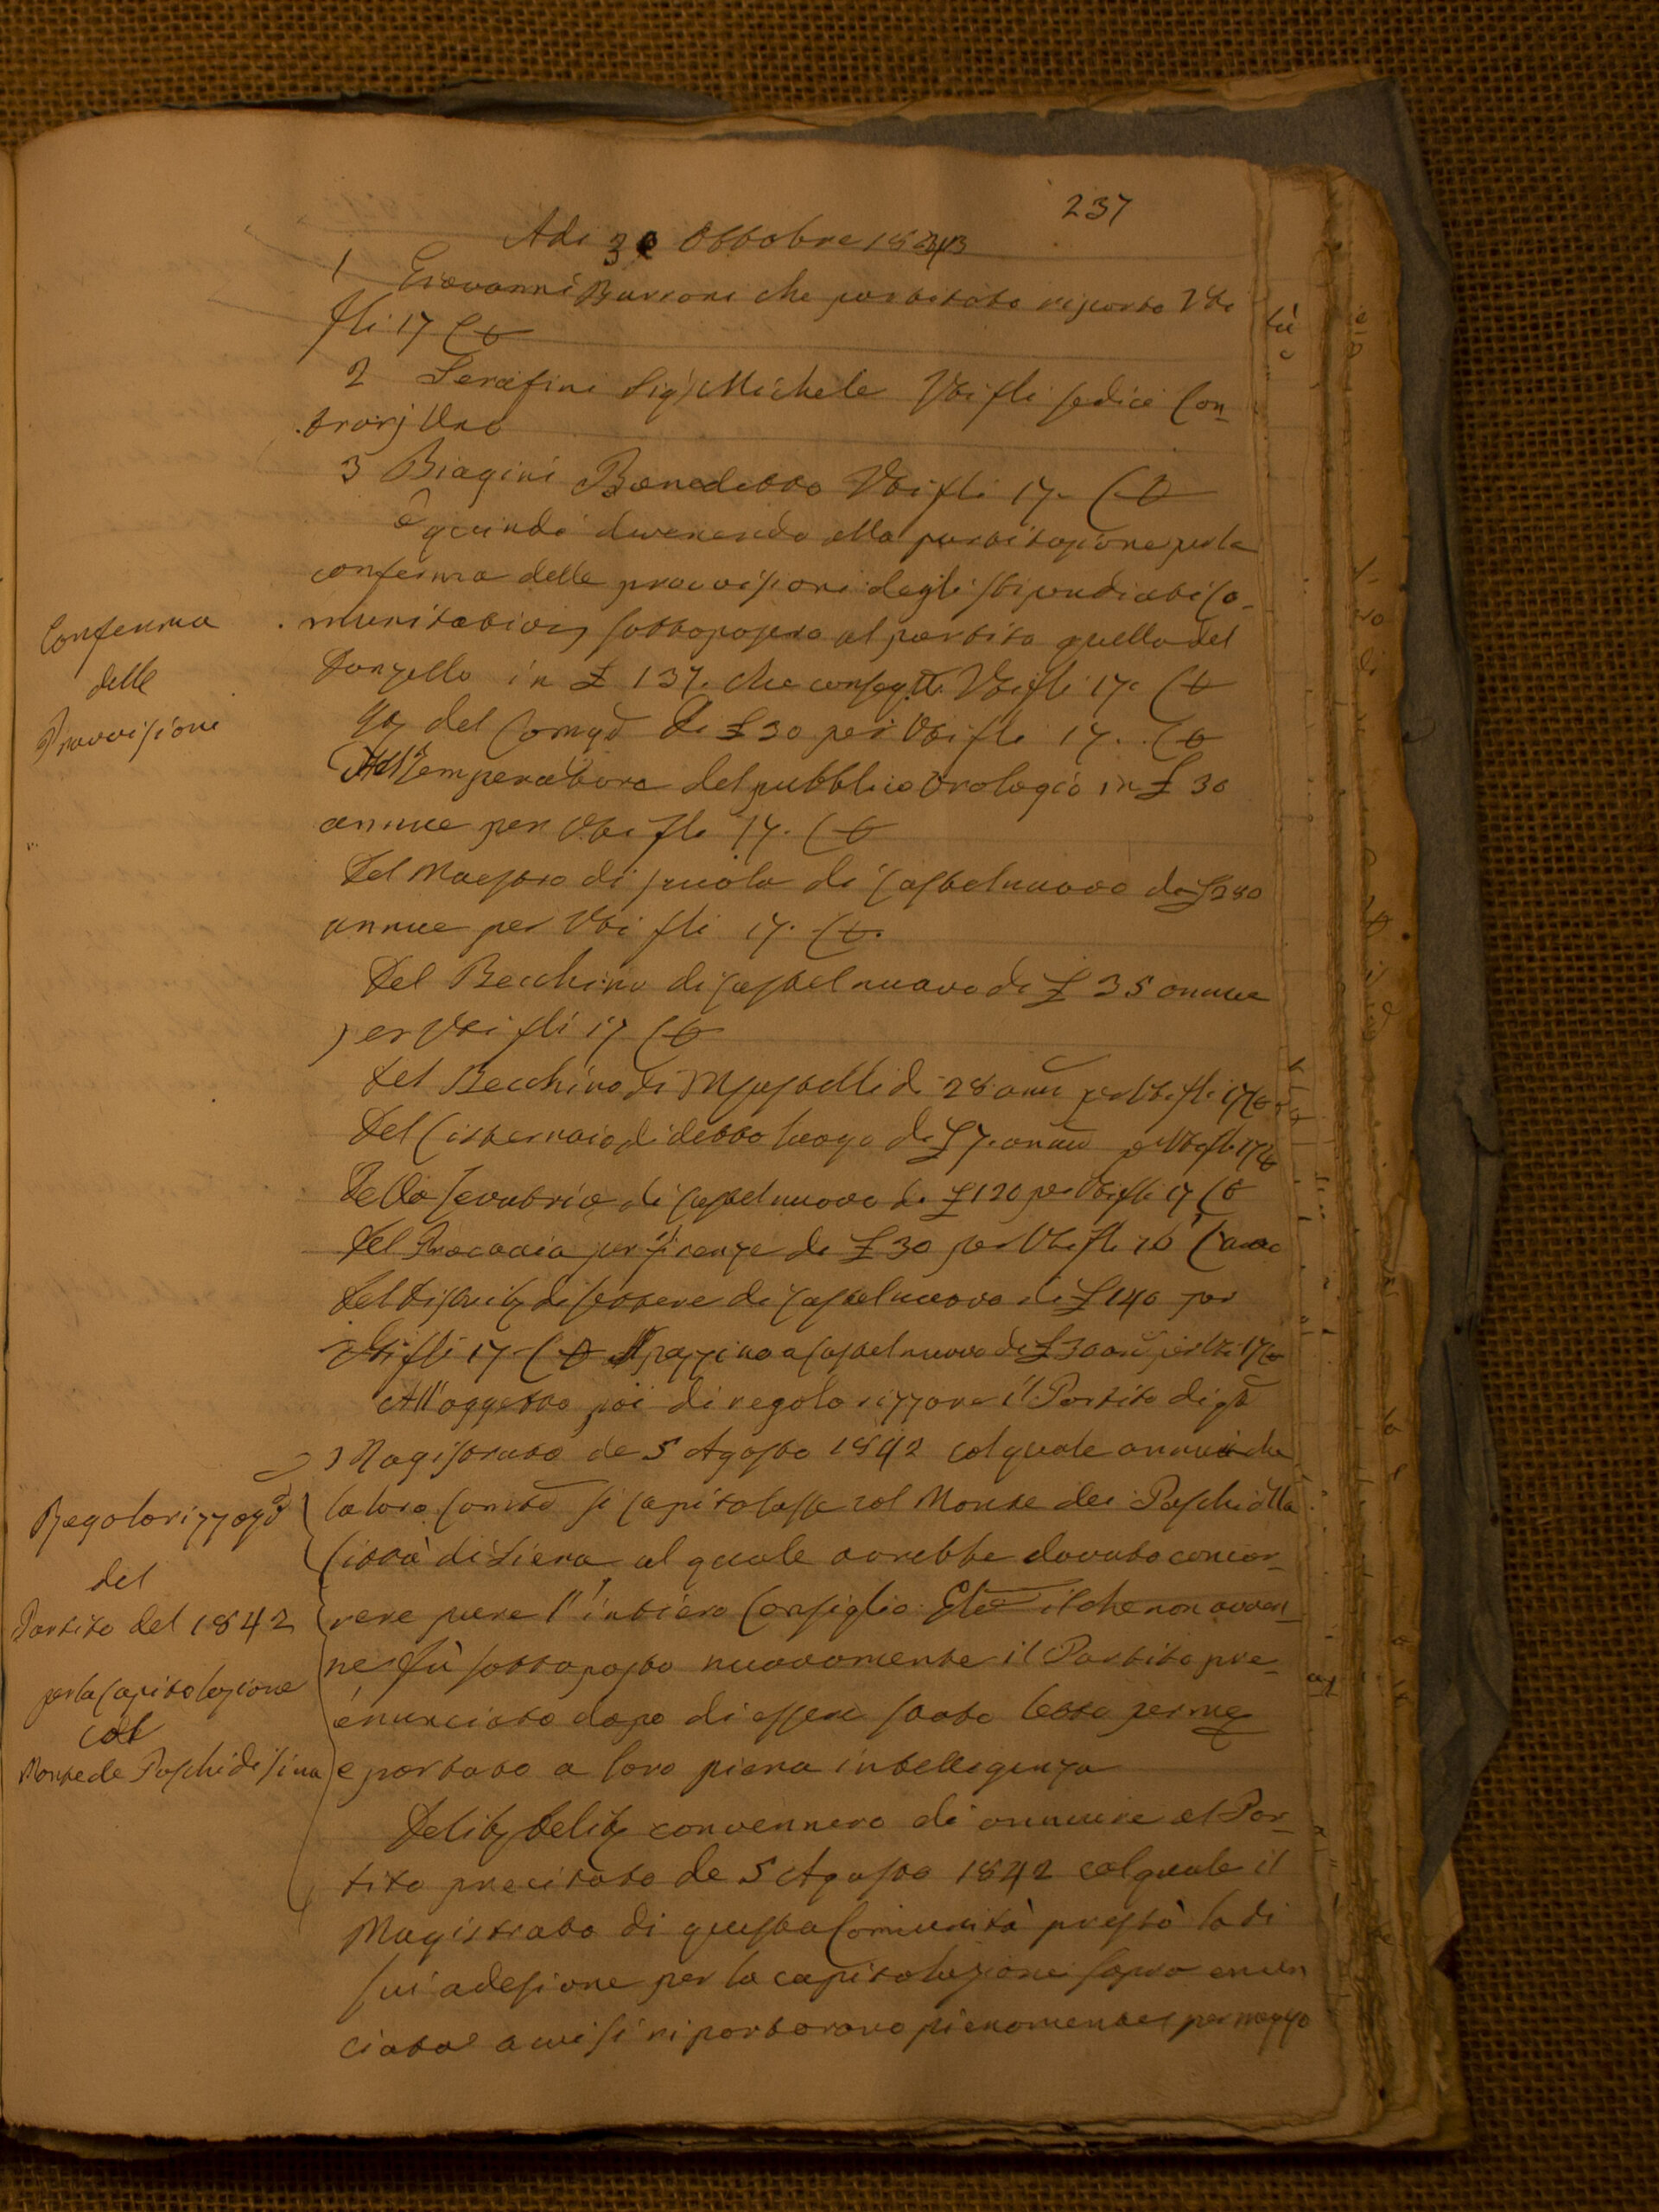 237
Adi 30 Ottobre 1843
1 Giovanni Burroni che partitato riportò Vti
fli 17 C 0
2 Serafini Sigr Michele Vti fli sedici Con-
trarj Uno
3 Biagini Benedetto Vti fli 17. C 0
E quindi devenendo alla partitazione per la
conferma delle provvisioni degli stipendiati Co-
munitativi sottoposero al partito quello del
Donzello in £ 137. che Vti fli 17. C 0
del di £ 30 per Vti fli 17. C 0
Del Temperatore del pubblico Orologio in £ 30
annue per Vti fli 17. C 0
Del Maestro di scuola di Castelnuovo di £ 280
annue per Vti fli 17. C 0.
Del Becchino di Castelnuovo di £ 35 annue
per Vti fli 17 C 0
Del Becchino di di 28 ann per Vti fli 17 C 0
Del Cisternaio di detto luogo di £ 7. annue per Vti fli 17 C 0
Della Levatrice di Castelnuovo di £ 120 per Vti fli 17 C 0
Del Procaccia per Firenze di £ 30 per Vti fli 16 C uno
Del di lettere di Castelnuovo di £ 140 per
Vti fli 17 C 0 Spazzino a Castelnuovo di £ 30 per Vti 17 C 0
All'oggetto poi di regolarizzare il Partito di qto
Magistrato de 5 Agosto 1842 col quale annuì che
la loro si capitolasse col Monte dei Paschi della
Città di Siena al quale avrebbe dovuto concor-
rere pure l'intiero Consiglio Gle il che non avven-
ne fù sottoposto nuovamente il Partito pre-
enunciato dopo di essere stato letto per me
e portato a loro piena intelligenza
Delib Delib convennero di annuire al Par-
tito precitato de 5 Agosto 1842 col quale il
Magistrato di questa Comunità prestò la di
sui adesione per la capitolazione sopra enun
ciata a cui si riportarono pienamente per mezzo
Conferma
delle
Provvisioni
Regolarizzazne
del
Partito del 1842
per la Capitolazione
col
Monte de Paschi di Siena